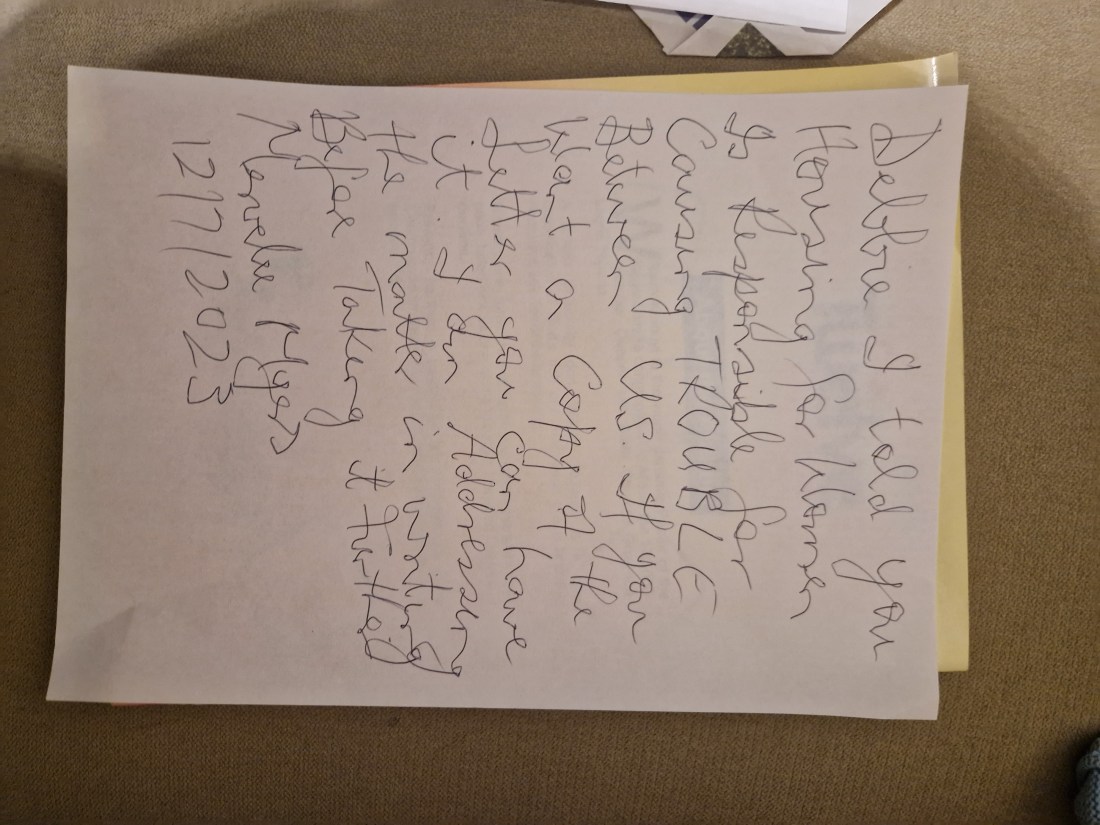 Debbie I told you
Housing for Women
Is Responsible for
Causing TROUBLE
Between Us. If you
Want a Copy of the
Letter you can have
it. I am Addressing
the matter in writing
Before Taking it
Myers
12/7/2023